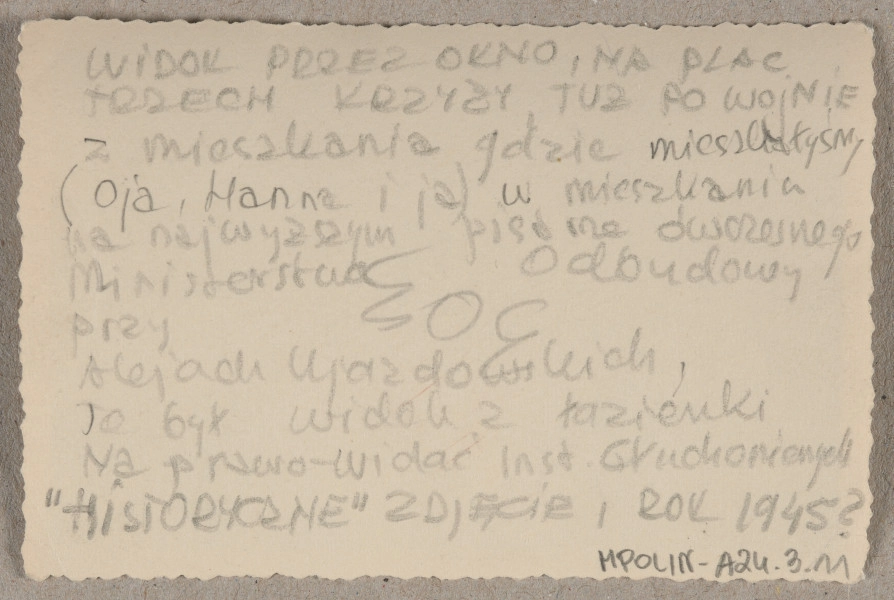 WIDOK PRZEZ OKNO, NA PLAC
TRZECH KRZYŻY, TUŻ PO WOJNIE
z mieszkania gdzie mieszkałyśmy
(Oja, Hanna i ja) w mieszkaniu
na najwyższym piętrze ówczesnego
Ministerstwa Odbudowy
przy
Alejach Ujazdowskich,
To był widok z łazienki
Na prawo-widać Inst. Głuchoniemych
"HISTORYCZNE" ZDJĘCIE, ROK 1945?
MPOLIN-A24.3.11